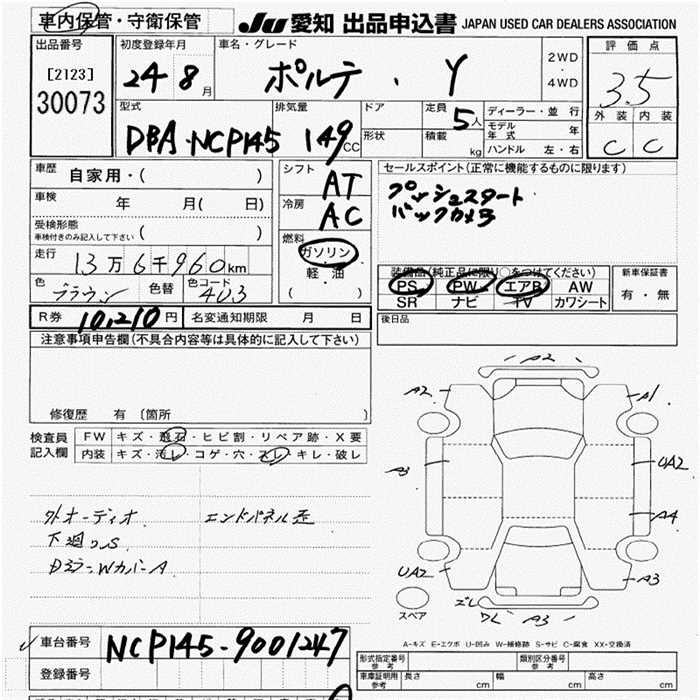 車内保管・守衛保管
Ju 愛知 出品申込書 JAPAN USED CAR DEALERS ASSOCIATION
出品番号
[2123]
30073
初度登録年月
24 8月
車名・グレード
ポルテ ・ Y
2WD
・
4WD
評価点
3.5
外装 内装
C C
型式
DBA・NCP145
排気量
149cc
ドア
形状
定員 5人
積載 kg
ディーラー・並行
モデル年式 年
ハンドル 左・右
車歴 自家用・( )
車検 年 月( 日)
受検形態
車検付きのみ記入して下さい ( )
走行 13万6千960km
色 ブラウン 色替 色コード 4U3
シフト AT
冷房 AC
燃料
ガソリン
・
軽・油
( )
セールスポイント(正常に機能するものに限ります)
プッシュスタート
バックカメラ
装備品(純正品に限り○をつけてください)
PS PW エアB AW
SR ナビ TV カワシート
新車保証書
有・無
R券 10,210円 名変通知期限 月 日
後日品
注意事項申告欄(不具合内容等は具体的に記入して下さい)
修復歴 有 〔箇所
検査員記入欄
FW キズ・飛石・ヒビ割・リペア跡・X要
内装 キズ・汚レ・コゲ・穴・スレ・キレ・破レ
外オーディオ エンドパネル歪
下廻りS
DミラーWカバーA
A2
A2
A1
A3
UA2
A4
UA2
A3
ズレ
ワレ A3
スペア
A-キズ E-エクボ U-凹み W-補修跡 S-サビ C-腐食 XX-交換済
車台番号 NCP145-9001247
登録番号
形式指定番号 参考
類別区分番号 参考
車庫証明用 参考 長さ cm 幅 cm 高さ cm